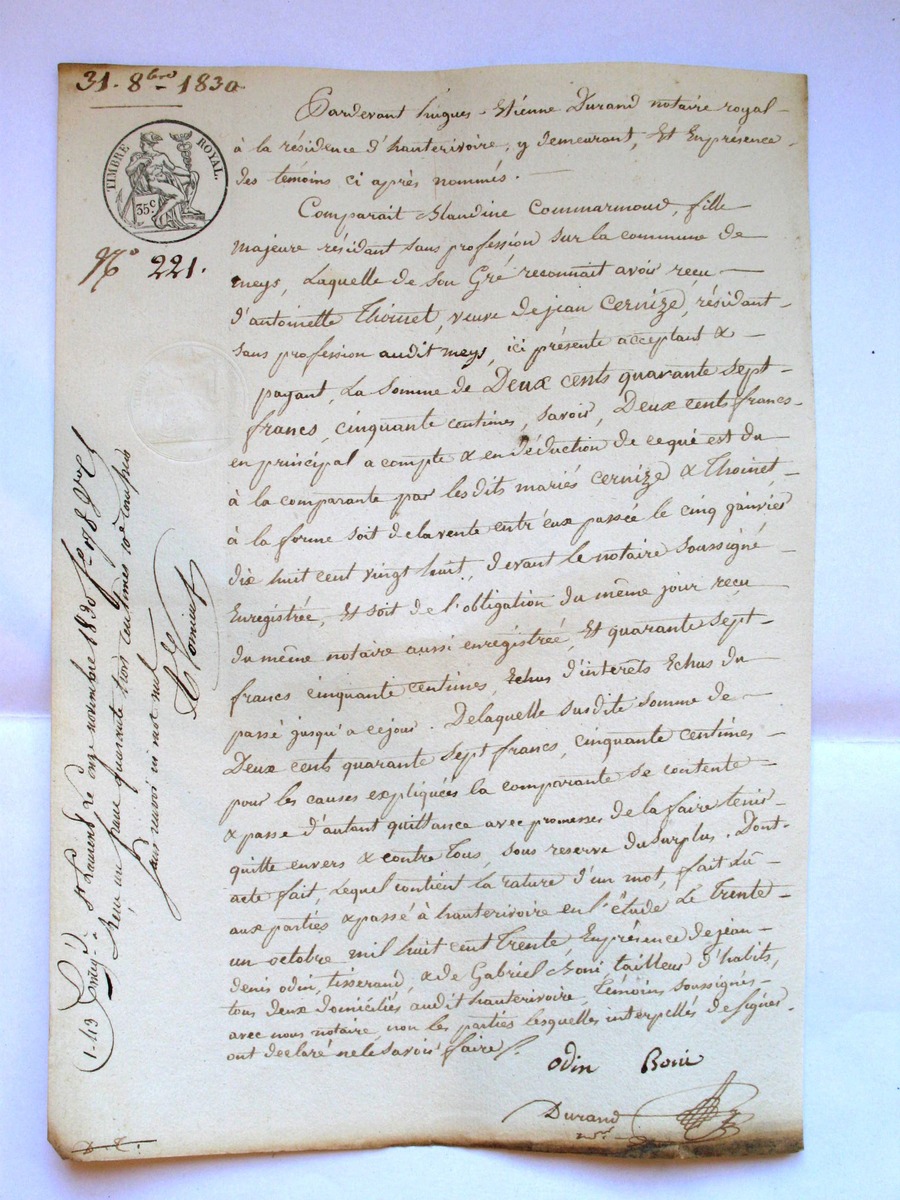 31. 8bre 1830
TIMBRE ROYAL.
35c
No 221.
Pardevant hugues-Etienne Durand notaire royal
à la résidence d'hauterivoire, y demeurant, Et En présence
des témoins ci après nommés.
Comparait Claudine Commarmond, fille
majeure résidant sans profession sur la commune de
meys, Laquelle de son Gré reconnait avoir reçu
d'antoinette Thoinet, veuve de jean Cernize, résidant
sans profession audit meys, ici présente acceptant &
payant, La Somme de Deux cents quarante sept
francs, cinquante centimes, savoir, Deux cents francs
en principal a compte & en déduction de ce qui est du
à la comparante par les dits mariés Cernize & Thoinet,
à la forme soit de la vente entr'eux passée le cinq janvier
dix huit cent vingt huit, devant le notaire soussigné
Enregistrée, Et soit de l'obligation du même jour reçu
du même notaire aussi enregistrée, Et quarante sept
francs cinquante centimes, d'interets Echus du
passé jusqu'a ce jour. De laquelle susdite somme de
Deux cents quarante sept francs, cinquante centimes
pour les causes expliquées la comparante se contente
& passe d'autant quittance avec promesses de la faire tenir
quitte envers & contre tous, sous reserve du surplus. Dont
acte fait, Lequel contient la rature d'un mot, fait Lû
aux parties & passé à hauterivoire en l'étude Le Trente
un octobre mil huit cent Trente, En présence de jean
denis odin, tisserand, & de Gabriel Boni, tailleur d'habits,
tous deux domiciliés audit hauterivoire, Témoins soussignés
avec nous notaire non les parties lesquelles interpellés de signer
ont declaré ne le savoir faire /.
odin Boni
Durand
nre
1-43 St Laurent Le onze novembre 1830 fo 178
Reçu un franc quarante trois centimes 10e compris
sans renvoi ni mot nul